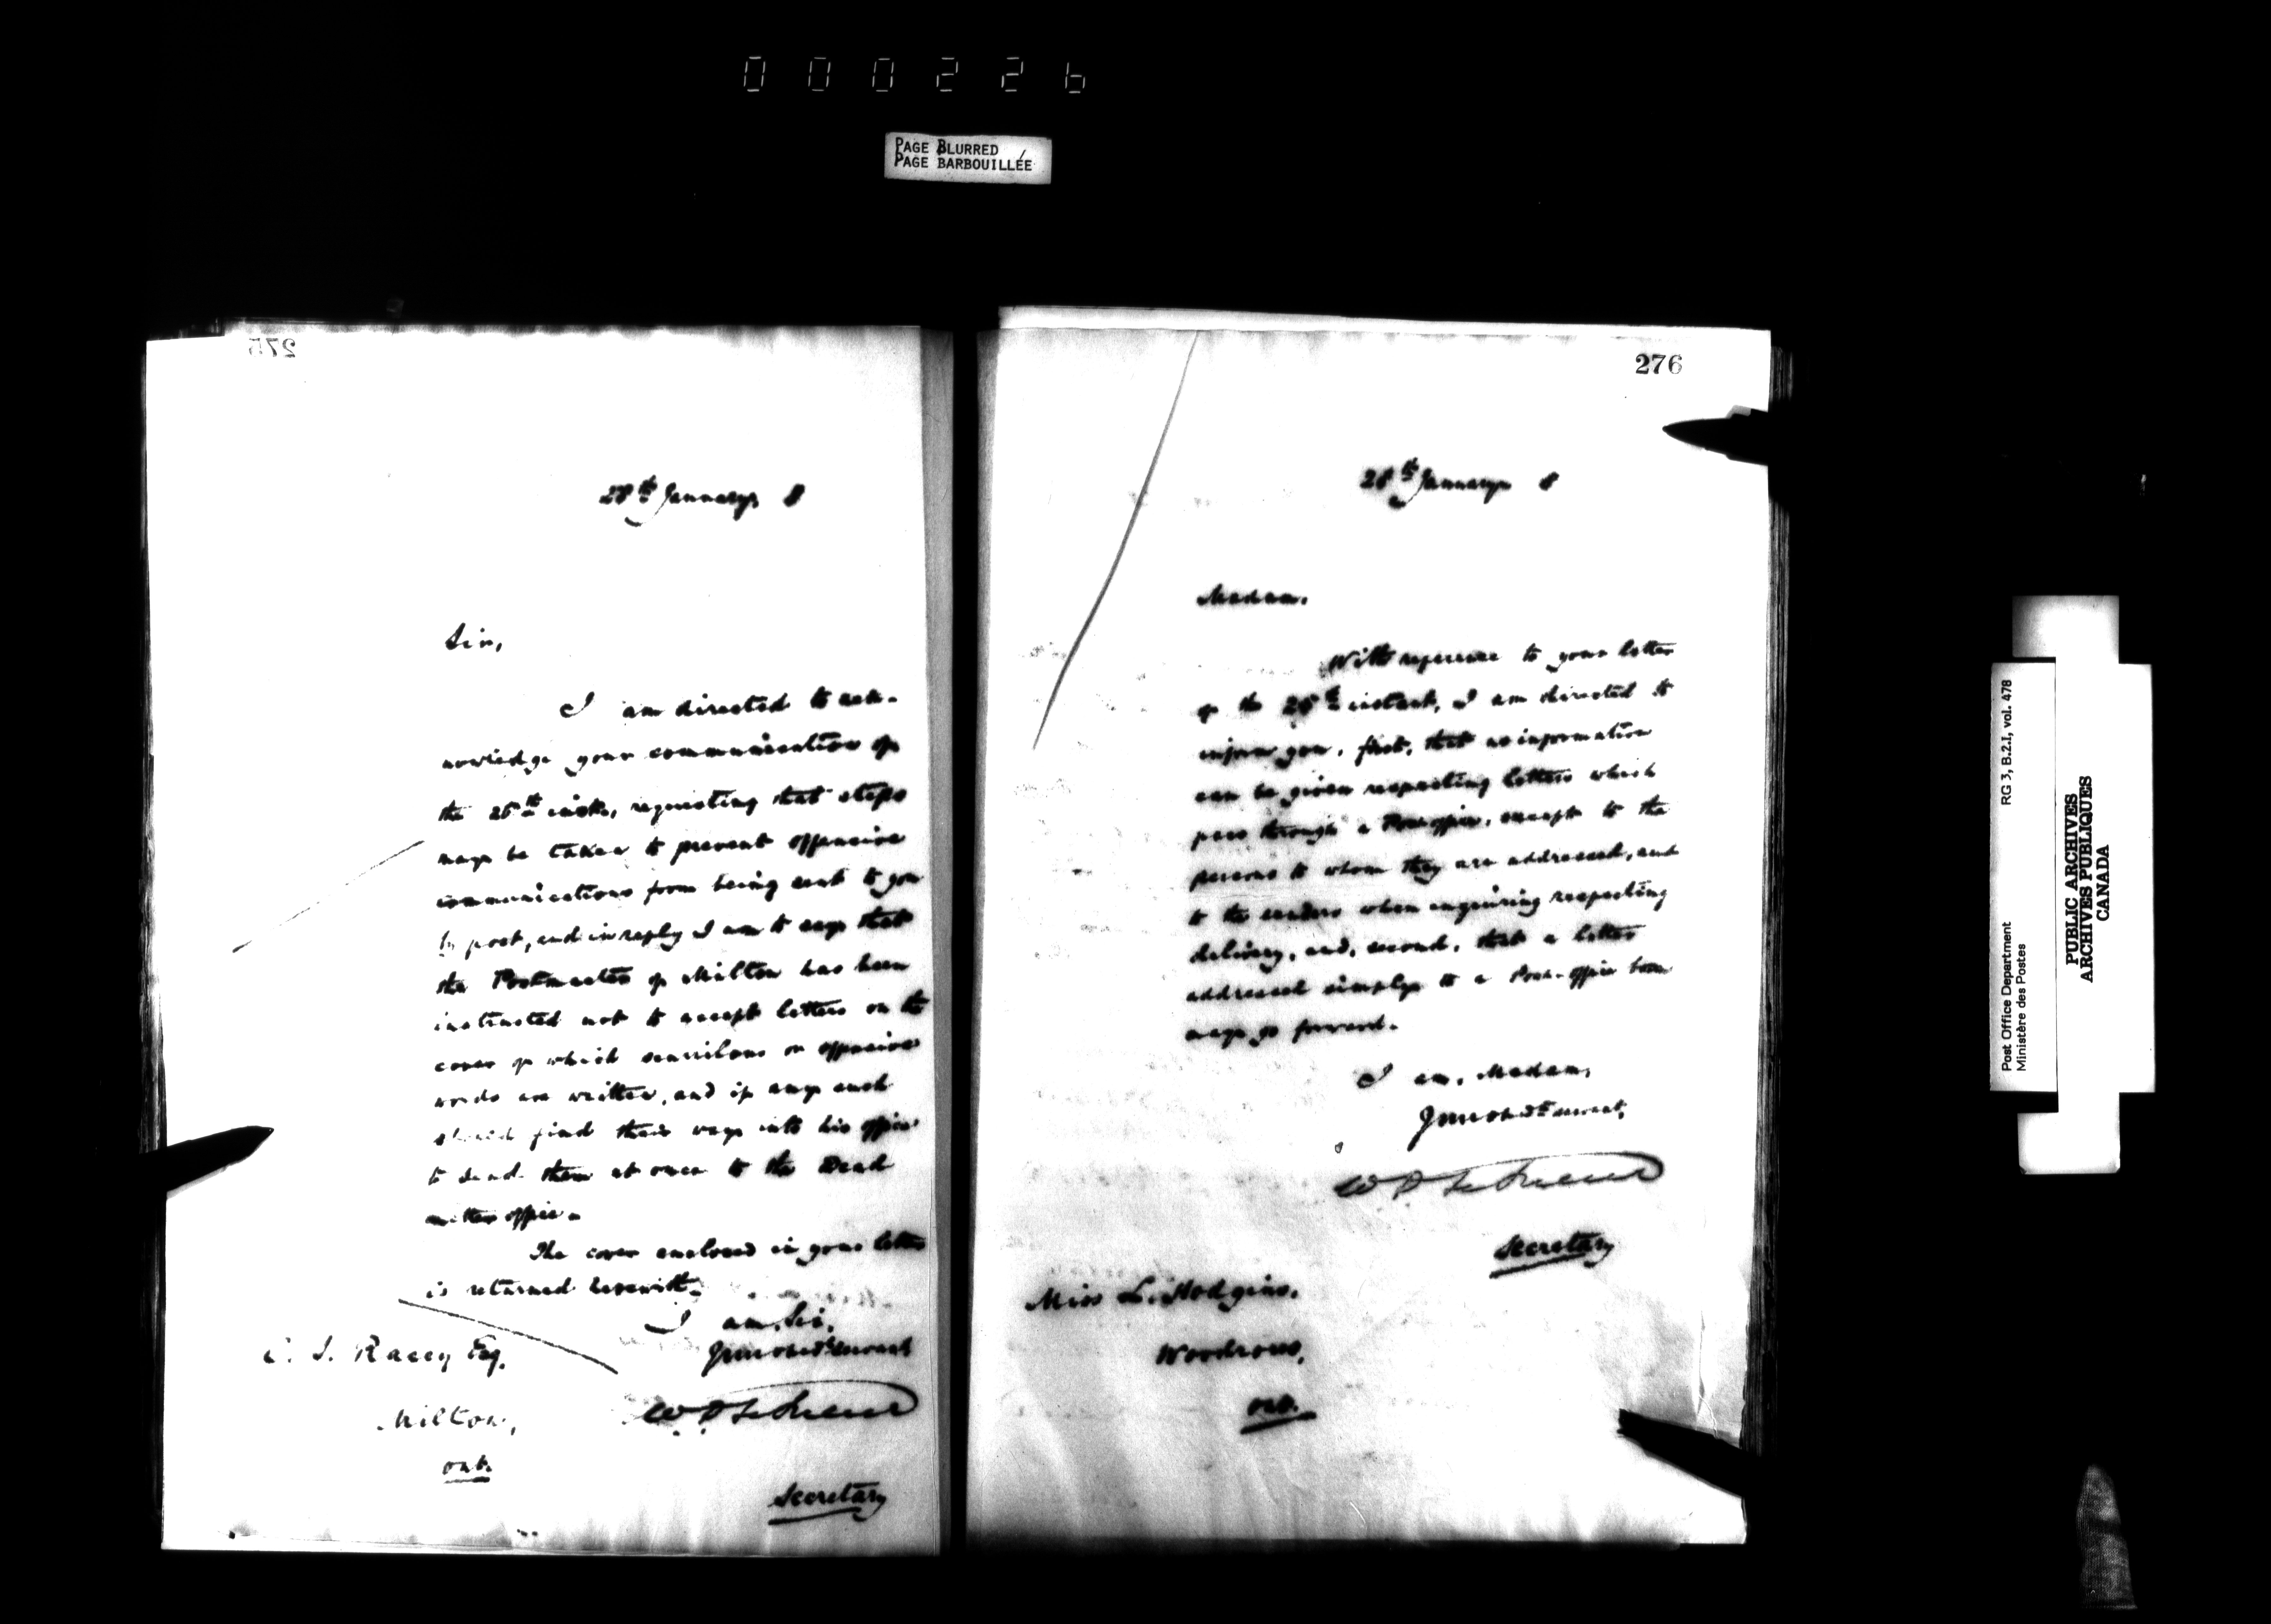 000226
PAGE BLURRED
PAGE BARBOUILLÉE
275
28th January, 8
Sir,
I am directed to ack-
nowledge your communication of
the 25th inst., requesting that steps
may be taken to prevent offensive
communications from being sent to you
by post, and in reply I am to say that
the Postmaster of Milton has been
instructed not to accept letters on the
cover of which scurrilous or offensive
words are written, and if any such
should find their way into his office
to send them at once to the Dead
Letter office.
The cover enclosed in your letter
is returned herewith.
I am, Sir,
Your obedt. servant
Secretary
C. J. Racey Esq.
Milton,
Ont.
276
28th January 8
Madam,
With reference to your letter
of the 25th instant, I am directed to
inform you, first, that no information
can be given respecting letters which
pass through a Post office, except to the
persons to whom they are addressed, and
to the senders when inquiring respecting
delivery, and, second, that a letter
addressed simply to a Post-office box
may go forward.
I am, Madam,
Your obedt. servant,
Secretary
Miss L. Hodgins,
Woodrous,
Ont.
Post Office Department
Ministère des Postes
RG 3, B.2.I, vol. 478
PUBLIC ARCHIVES
ARCHIVES PUBLIQUES
CANADA